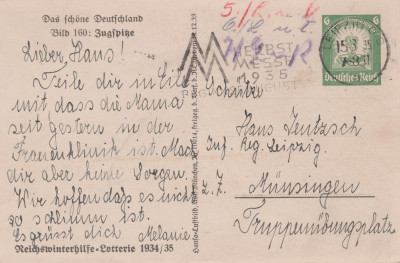 Das schöne Deutschland
Bild 160: Zugspitze
Lieber Hans!
Teile dir in Eile
mit, dass die Mama
seit gestern in der
Frauenklinik ist. Mach
dir aber keine Sorgen.
Wir hoffen dass es nicht
so schlimm ist.
Es grüsst dich Melanie.
Reichswinterhilfe-Lotterie 1934/35
HERBST
MESSE
1935
AUGUST
LEIPZIG
6 6
Deutsches Reich
Schütze
Hans Jentzsch
Inf. Reg. Leipzig
z. Z. Münsingen
Truppenübungsplatz